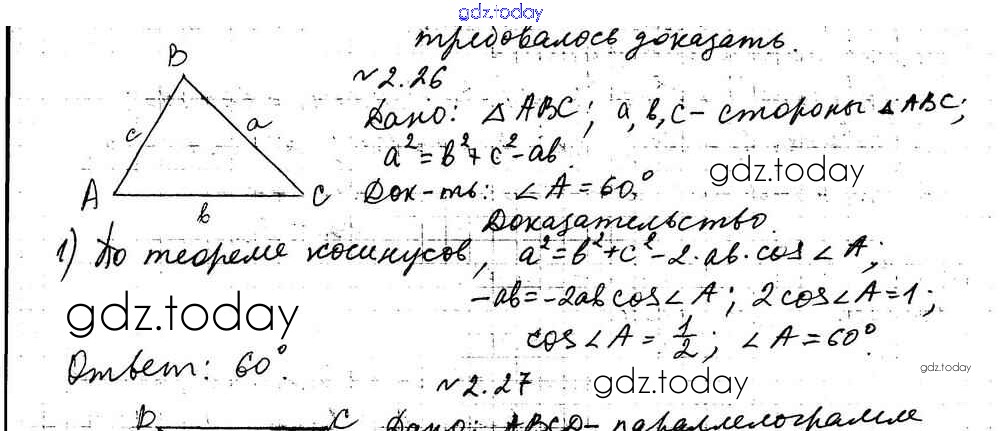 gdz.today
требовалось доказать.
B
№ 2.26
Дано: △ABC; a, в, c - стороны △ABC;
c
a
a² = в² + c² - ab.
gdz.today
A
C
Док-ть: ∠A = 60°.
в
Доказательство.
1) По теореме косинусов, a² = в² + c² - 2·ab·cos∠A;
-ab = -2ab cos∠A; 2cos∠A = 1;
gdz.today
cos∠A = 1/2; ∠A = 60°.
Ответ: 60°.
gdz.today
№ 2.27
gdz.today
B
C
Дано: ABCD - параллелограмм